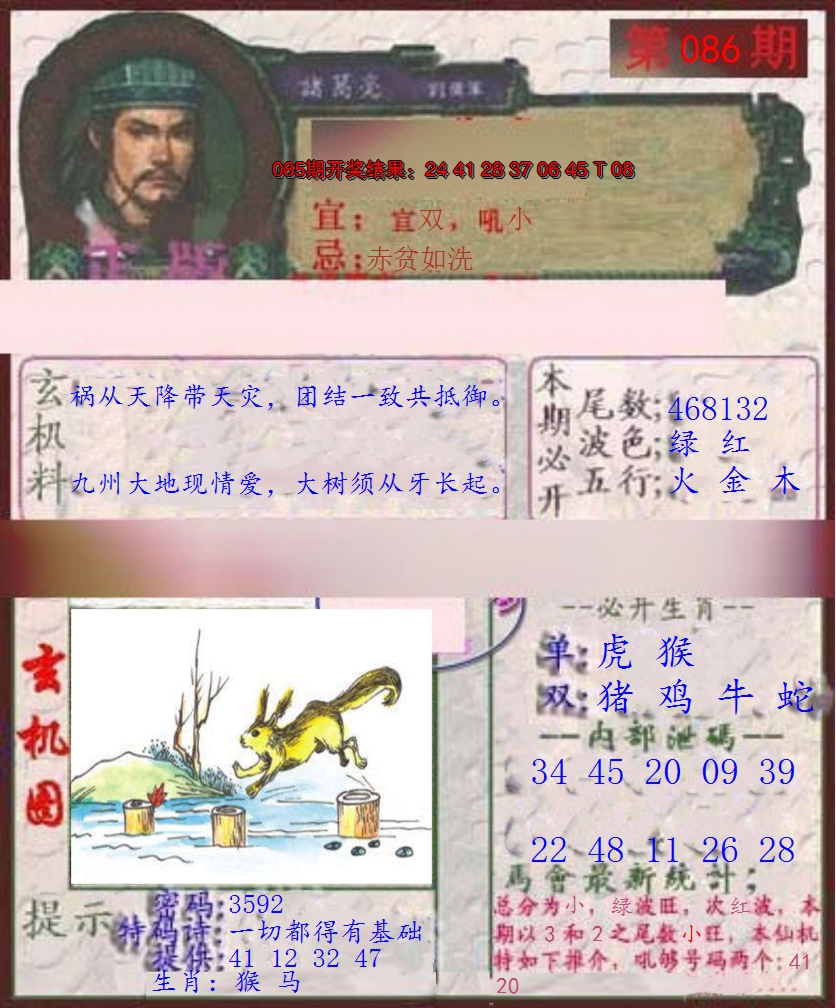 第 086 期
諸葛亮
085期开奖结果：24 41 28 37 06 45 T 08
宜：宜双，吼小
忌：赤贫如洗
正版
玄机料
祸从天降带天灾，团结一致共抵御。
九州大地现情爱，大树须从牙长起。
本期必开
尾数；468132
波色；绿 红
五行；火 金 木
玄机图
--必开生肖--
单：虎 猴
双：猪 鸡 牛 蛇
--内部泄碼--
34 45 20 09 39
22 48 11 26 28
馬會最新統計；
总分为小，绿波旺，次红波，本
期以3和2之尾数小旺，本仙机
特如下推介，吼够号码两个：41
20
提示
密码：3592
特码诗：一切都得有基础
提供：41 12 32 47
生肖：猴 马